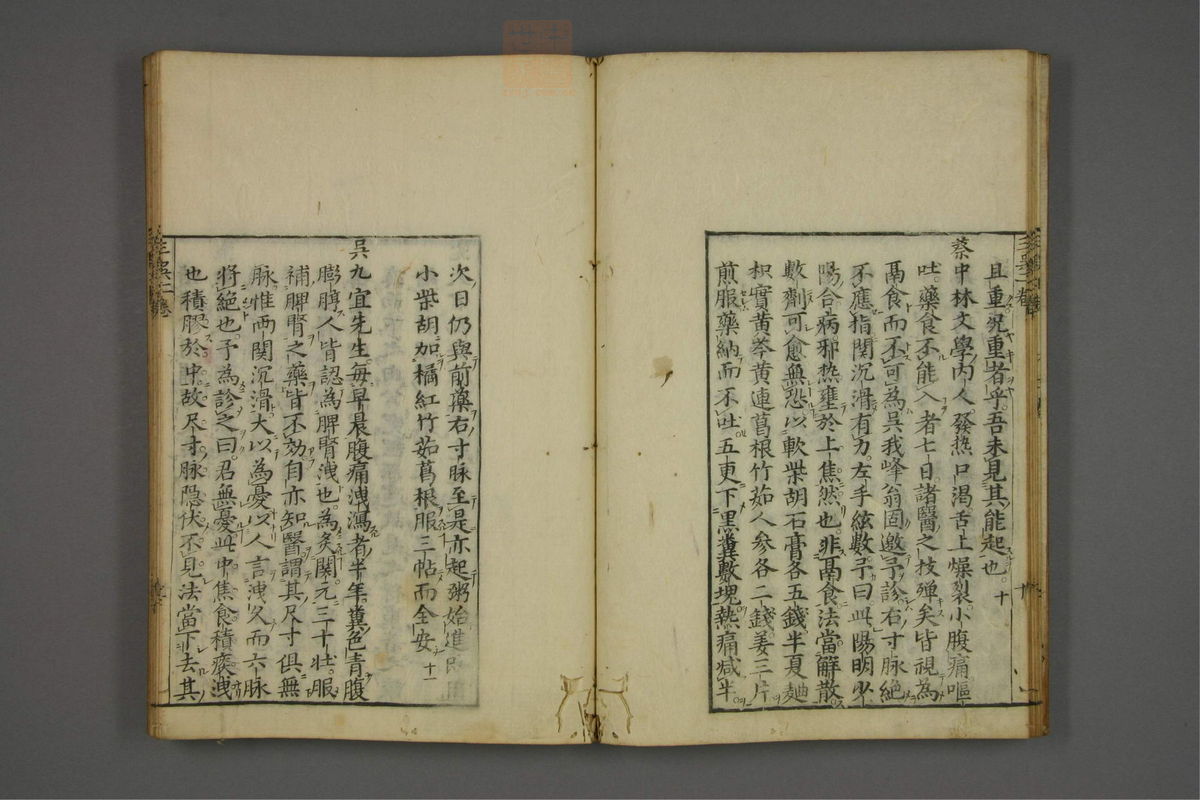 且重況重者乎。吾未見其能起也。十
蔡中林文學內人。發熱口渴。舌上燥裂。小腹痛。嘔
吐。藥食不能入者七日。諸醫之技殫矣。皆視為
鬲食而不可為。吳我峰翁固邀予診。右寸脉絕
不應指。関沉滑有力。左手絃數。予曰。此陽明少
陽合病。邪熱壅於上焦然也。非鬲食。法當解散。
數劑可愈。無恐。以軟柴胡石膏各五錢。半夏麯
枳實黃芩黃連葛根竹茹人參各二錢。姜三片。
煎服。藥納而不吐。五更下黑糞數塊。熱痛咸半。
次日仍與前藥。右寸脉至是亦起。粥始進。
小柴胡加橘紅竹茹葛根。服三帖而全安。十一
吳九宜先生。每早晨腹痛洩瀉者半年。糞色青。腹
膨脝。人皆認為脾腎洩也。為灸関元三十壯。服
補脾腎之藥。皆不効。自亦知醫。謂其尺寸俱無
脉。惟兩関沉滑。大以為憂。以人言洩久而六脉
將絕也。予為診之曰。君無憂。此中焦食積痰洩
也。積膠於中。故尺寸脉隐伏不見。法當下去其